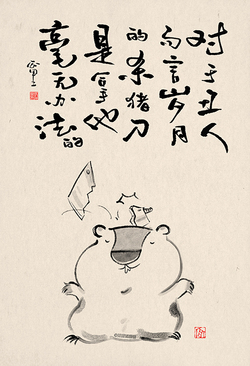 对于丑人
而言岁月
的杀猪刀
是拿他
毫无办
法的